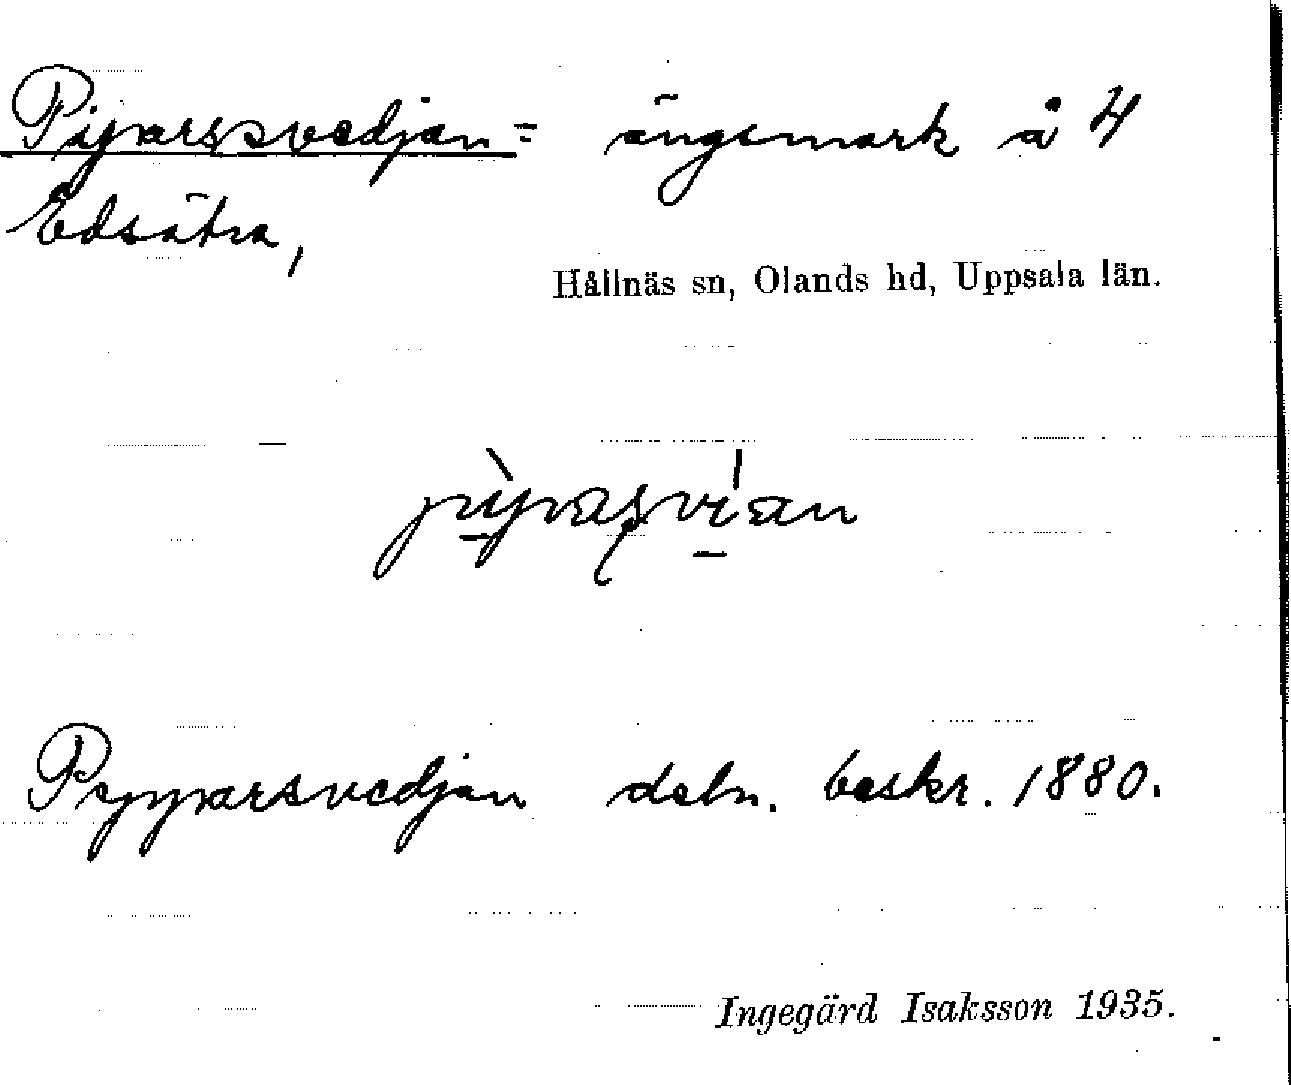 Piparssvedjan = ängsmark å 4
Edsätra,
Hållnäs sn, Olands hd, Uppsala län.
Pepparsvedjan deln. beskr. 1880.
Ingegärd Isaksson 1935.